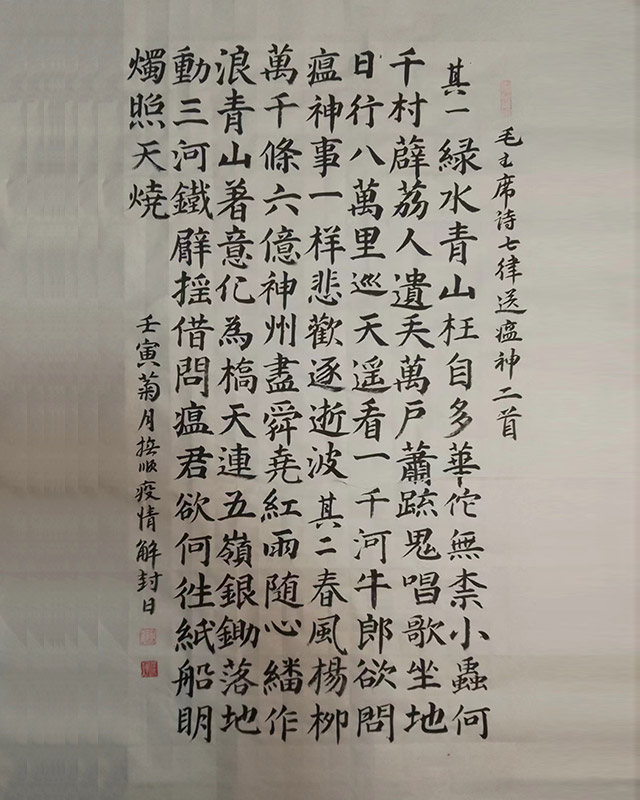 毛主席诗七律送瘟神二首
其一綠水青山枉自多華佗無柰小蟲何
千村薜荔人遺矢萬戶蕭疏鬼唱歌坐地
日行八萬里巡天遥看一千河牛郎欲問
瘟神事一样悲歡逐逝波其二春風楊柳
萬千條六億神州盡舜堯紅雨随心繙作
浪青山著意化為橋天連五嶺銀鋤落地
動三河鐵臂摇借問瘟君欲何往紙船明
燭照天燒
壬寅菊月撫順疫情解封日